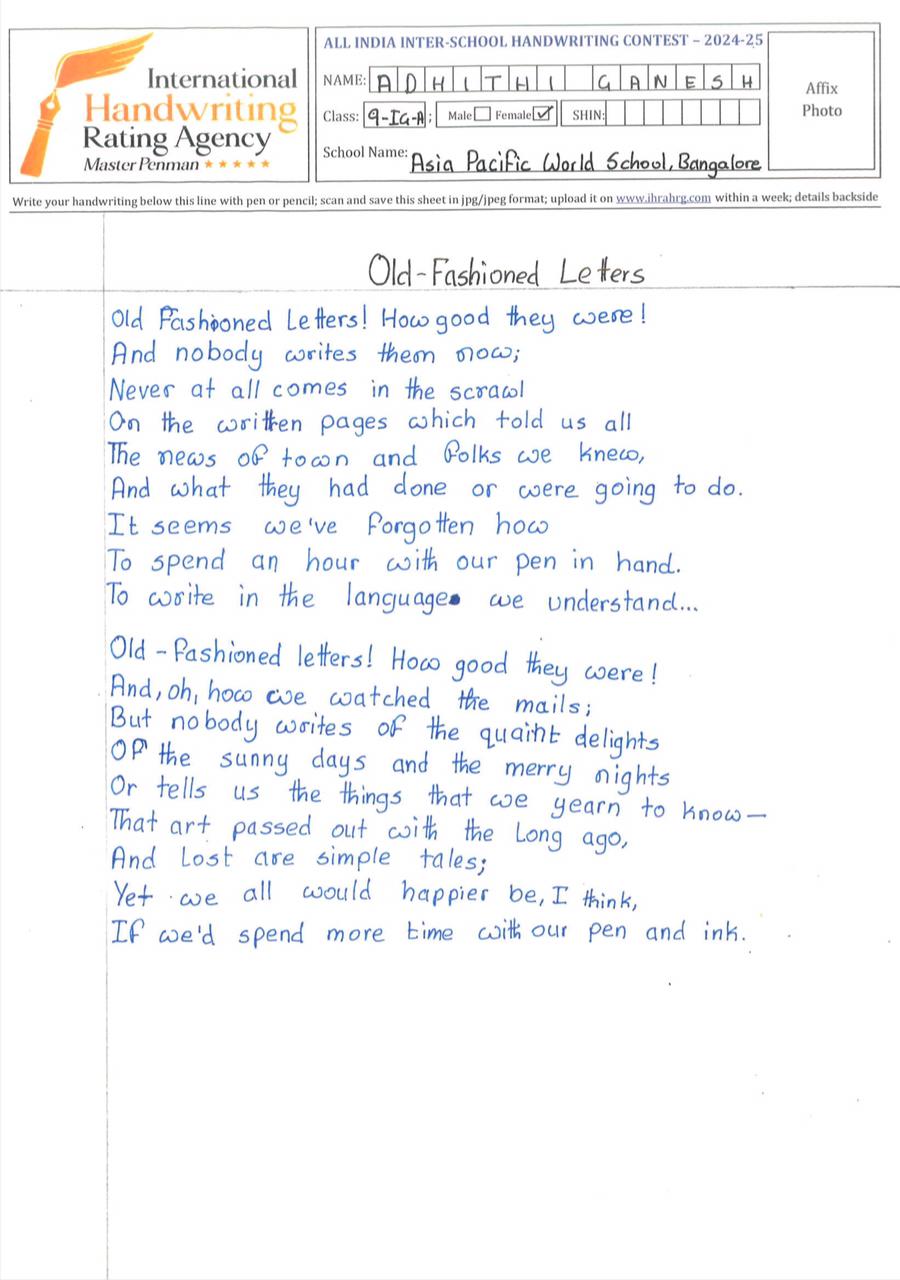 International
Handwriting
Rating Agency
Master Penman ★★★★★
ALL INDIA INTER-SCHOOL HANDWRITING CONTEST – 2024-25
NAME: ADHITHI GANESH
Class: 9-IG-A; Male ☐ Female ☑ SHIN:
School Name: Asia Pacific World School, Bangalore
Affix
Photo
Write your handwriting below this line with pen or pencil; scan and save this sheet in jpg/jpeg format; upload it on www.ihrahrg.com within a week; details backside
Old-Fashioned Letters
Old Fashioned Letters! How good they were!
And nobody writes them now;
Never at all comes in the scrawl
On the written pages which told us all
The news of town and folks we knew,
And what they had done or were going to do.
It seems we've forgotten how
To spend an hour with our pen in hand.
To write in the language we understand...
Old-fashioned letters! How good they were!
And, oh, how we watched the mails;
But nobody writes of the quaint delights
Of the sunny days and the merry nights
Or tells us the things that we yearn to know—
That art passed out with the Long ago,
And Lost are simple tales;
Yet we all would happier be, I think,
If we'd spend more time with our pen and ink.